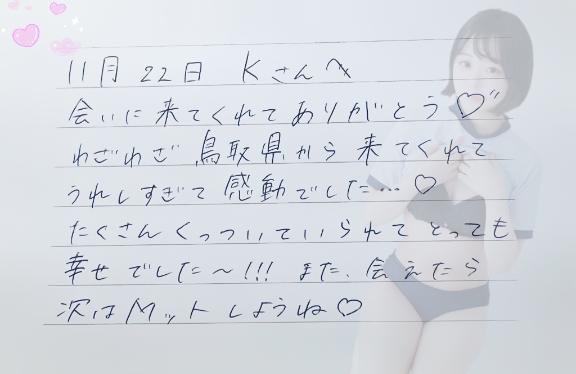 11月 22日 Kさんへ
会いに来てくれてありがとう♡"
わざわざ 鳥取県から 来てくれて
うれしすぎて 感動でした…♡
たくさん くっついていられて とっても
幸せでした〜!!! また、会えたら
次は マット しようね♡